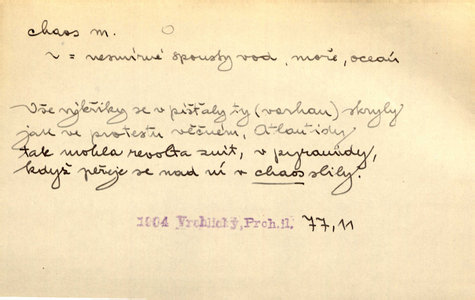 chaos m.
v = nesmírné spousty vod, moře, oceán
Vše výkřiky se v píšťaly ty (varhan) skryly
jak ve protestu věčném, Atlantidy
tak mohla revolta znít, v pyramidy,
když peřeje se nad ní v chaos slily.
1904 Vrchlický, Prch.il. 77,11